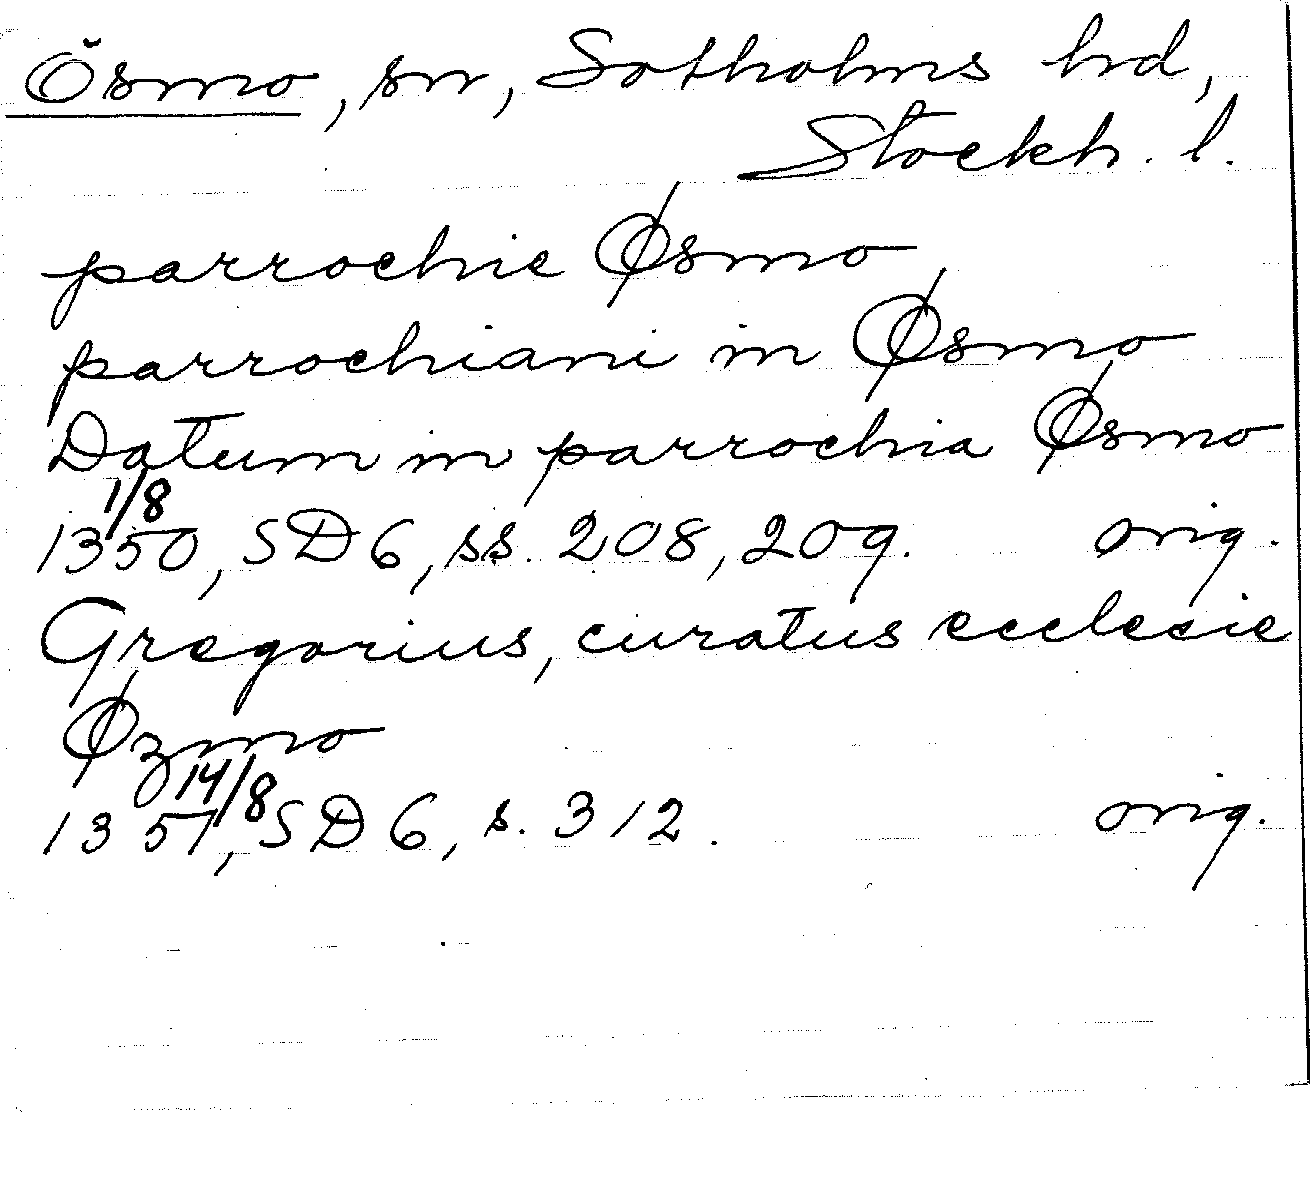 Ösmo, sn, Sotholms hrd,
Stockh. l.
parrochie Øsmo
parrochiani in Øsmo
Datum in parrochia Øsmo
1/8
1350, SD 6, ss. 208, 209. orig.
Gregorius, curatus ecclesie
Øzmo
14/8
1357, SD 6, s. 312. orig.